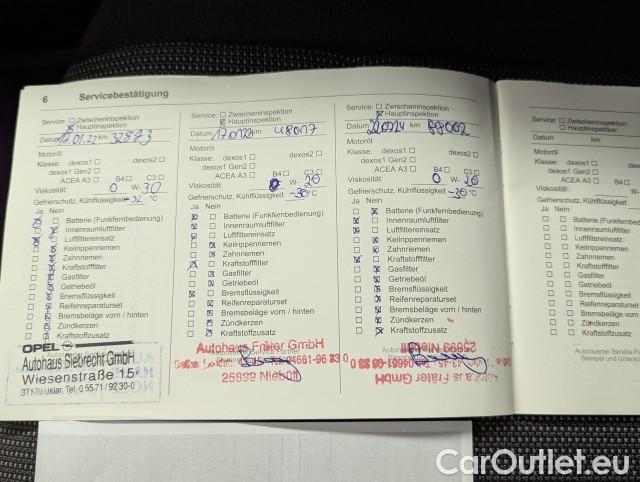 6 Servicebestätigung
Service: Zwischeninspektion
Hauptinspektion
Datum .01.22 km 32873
Motoröl
Klasse: dexos1 dexos2
dexos1 Gen2
ACEA A3 B4 C3
Viskosität: 0 W- 30
Gefrierschutz, Kühlflüssigkeit -32 °C
Ja Nein
Batterie (Funkfernbedienung)
Innenraumluftfilter
Luftfiltereinsatz
Keilrippenriemen
Zahnriemen
Kraftstofffilter
Gasfilter
Getriebeöl
Bremsflüssigkeit
Reifenreparaturset
Bremsbeläge vorn / hinten
Zündkerzen
Kraftstoffzusatz
OPEL
Autohaus Siebrecht GmbH
Wiesenstraße 15
37170 Uslar, Tel. 0 55 71 / 92 30-0
Service: Zwischeninspektion
Hauptinspektion
Datum km 48017
Motoröl
Klasse: dexos1 dexos2
dexos1 Gen2
ACEA A3 B4 C3
Viskosität: 0 W- 20
Gefrierschutz, Kühlflüssigkeit -30 °C
Ja Nein
Batterie (Funkfernbedienung)
Innenraumluftfilter
Luftfiltereinsatz
Keilrippenriemen
Zahnriemen
Kraftstofffilter
Gasfilter
Getriebeöl
Bremsflüssigkeit
Reifenreparaturset
Bremsbeläge vorn / hinten
Zündkerzen
Kraftstoffzusatz
Autohaus Fräter GmbH
25899 Niebüll
Service: Zwischeninspektion
Hauptinspektion
Datum km
Motoröl
Klasse: dexos1 dexos2
dexos1 Gen2
ACEA A3 B4 C3
Viskosität: 0 W- 20
Gefrierschutz, Kühlflüssigkeit -30 °C
Ja Nein
Batterie (Funkfernbedienung)
Innenraumluftfilter
Luftfiltereinsatz
Keilrippenriemen
Zahnriemen
Kraftstofffilter
Gasfilter
Getriebeöl
Bremsflüssigkeit
Reifenreparaturset
Bremsbeläge vorn / hinten
Zündkerzen
Kraftstoffzusatz
25899 Niebüll
Autohaus Fräter GmbH
Service: Zwischeninspektion
Hauptinspektion
Datum km
Motoröl
Klasse: dexos1
dexos1 Gen2
ACEA A3 B4
Viskosität:
Gefrierschutz, Kühlflüssigkeit
Ja Nein
Batterie (Funkfernb
Innenraumluftfilter
Luftfiltereinsatz
Keilrippenriemen
Zahnriemen
Kraftstofffilter
Gasfilter
Getriebeöl
Bremsflüssigkeit
Reifenreparaturset
Bremsbeläge vorn
Zündkerzen
Kraftstoffzusatz
Autorisierter Service Pa
Stempel und Untersch
CarOutlet.eu